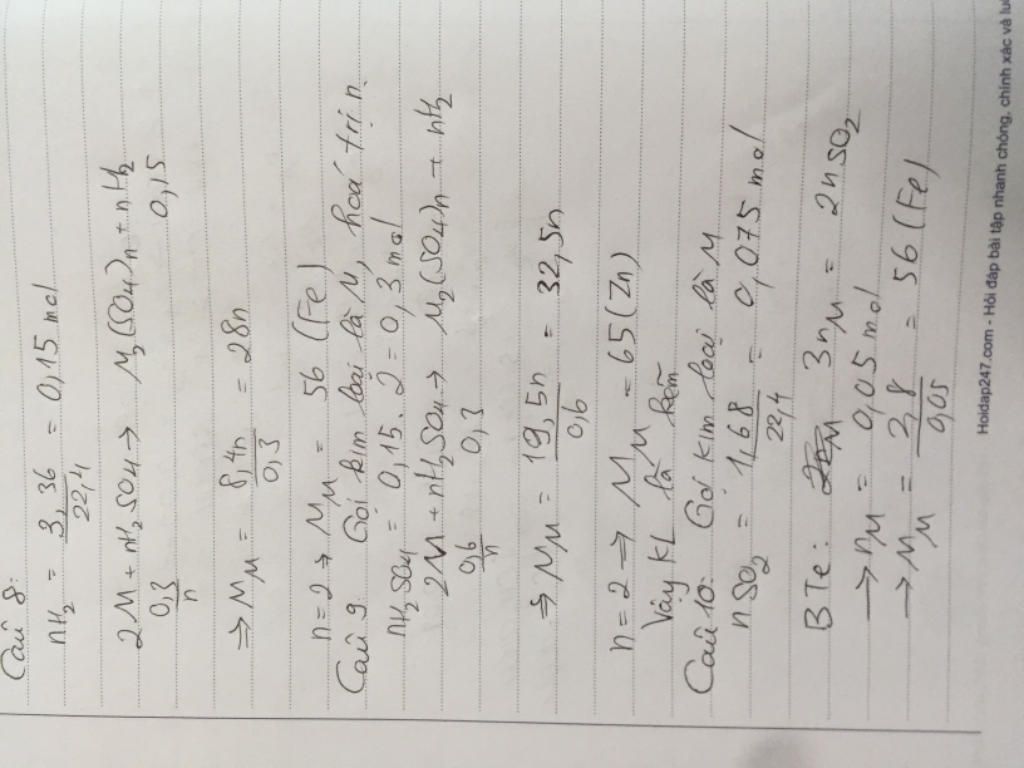 Câu 8:
nH2 = 3,36/22,4 = 0,15 mol
2M + nH2SO4 → M2(SO4)n + nH2
0,3/n 0,15
⇒ MM = 8,4n/0,3 = 28n
n = 2 → MM = 56 (Fe)
Câu 9. Gọi kim loại là M, hoá trị n.
nH2SO4 = 0,15.2 = 0,3 mol
2M + nH2SO4 → M2(SO4)n + nH2
0,6/n 0,3
⇒ MM = 19,5n/0,6 = 32,5n
n = 2 ⇒ MM = 65 (Zn)
Vậy KL là kẽm
Câu 10: Gọi kim loại là M
nSO2 = 1,68/22,4 = 0,075 mol
BTe: 3nM = 2nSO2
→ nM = 0,05 mol
→ MM = 2,8/0,05 = 56 (Fe)
Hoidap247.com - Hỏi đáp bài tập nhanh chóng, chính xác và